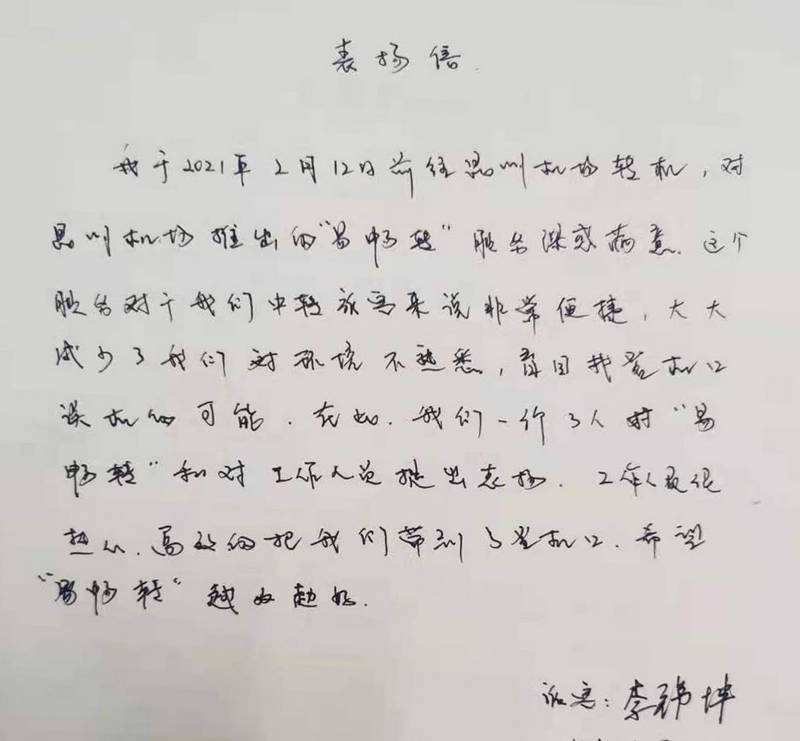 表扬信.
我于2021年2月12日前往温州机场转机，对
温州机场推出的“易畅转”服务深感满意.这个
服务对于我们中转旅客来说非常便捷，大大
减少了我们对环境不熟悉，盲目找登机口
误机的可能.在此.我们一行3人对“易
畅转”和对工作人员提出表扬.工作人员很
热心.高效的把我们带到了登机口.希望
“易畅转”越办越好.
旅客：李 坤